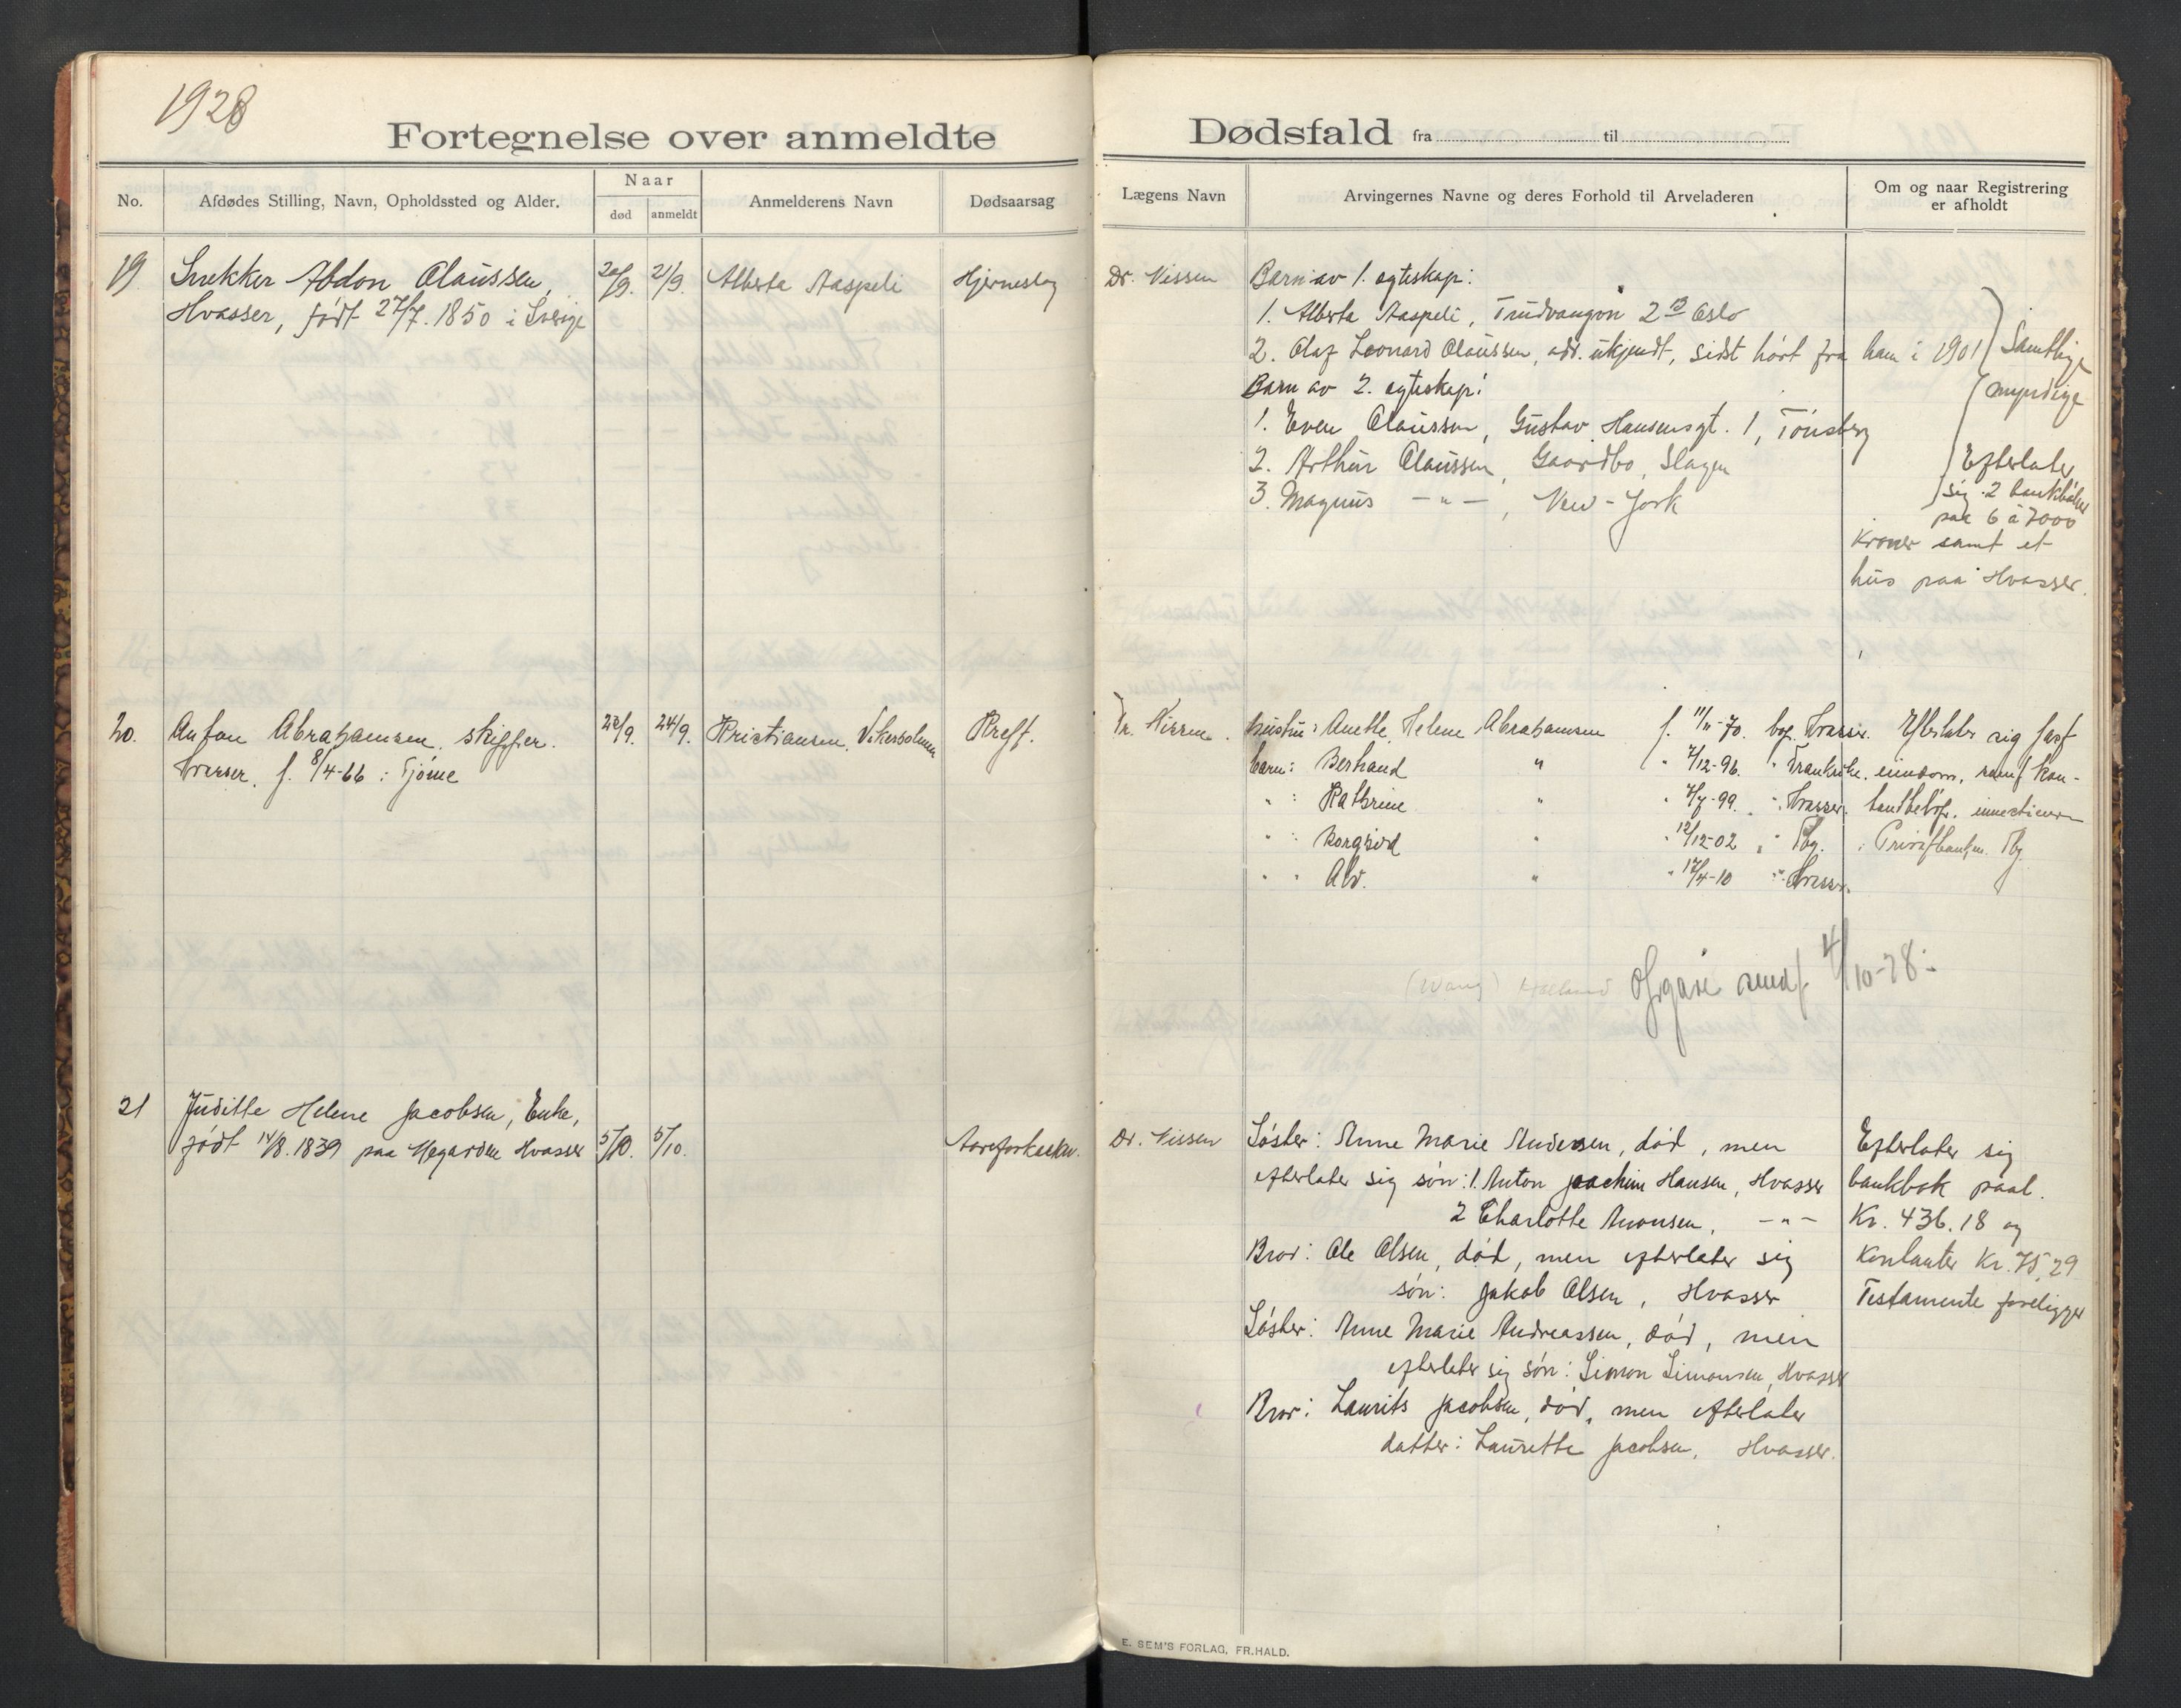 1928
Fortegnelse over anmeldte Dødsfald fra til
No.
Afdødes Stilling, Navn, Opholdssted og Alder.
Naar
død
anmeldt
Anmelderens Navn
Dødsaarsag
Lægens Navn
Arvingernes Navne og deres Forhold til Arveladeren
Om og naar Registrering
er afholdt
19 Snekker Abdon Claussen, 20/9. 21/9. Alberta Aaspeli Hjerneslag
Hvasser, født 27/7. 1850 i Sverige
Dr. Nissen
Barn av 1. egteskap:
1. Alberta Aaspeli, Trudvangvn 2 Oslo
2. Olaf Leonard Claussen, adr. ukjendt, sidst hørt fra ham i 1901
Barn av 2. egteskap:
1. Even Claussen, Gustav Hansensgt. 1, Tønsberg
2. Arthur Claussen, Gaardbo, Slagen
3. Magnus — " — , New-York
Samtlige
myndige
Efterlater
sig 2 bankbøker
paa 6 à 7000
Kroner samt et
hus paa Hvasser.
20. Anton Abrahamsen, skipper. 22/9. 24/9. Kristiansen, Vikerholmen Kreft.
Hvasser. f. 8/4-66 i Tjøme
Dr. Nissen.
hustru: Anette Helene Abrahamsen f. 11/11-70. bop. Hvasser.
barn: Berhard " " 7/12-96. " Frankrike.
" : Kathrine " " 4/7-99. " Hvasser.
" : Borghild " " 12/12-02 " Tbg.
" " Alv. " " 17/4-10 " Hvasser.
Efterlater sig fast
eiendom, samt kon-
tantbeløp. innestående
i Privatbanken. Tbg.
Opgave sendt 4/10-28.
21 Juditte Helene Jacobsen, Enke,
født 14/8. 1839 paa Hvasser 5/10. 5/10. Aareforkalkn.
Dr. Nissen
Søster: Anne Marie Andersen, død, men
efterlater sig søn: 1. Anton Joachim Hansen, Hvasser
2 Charlotte Aronsen, — " —
Bror: Ole Olsen, død, men efterlater sig
søn: Jakob Olsen, Hvasser
Søster: Anne Marie Andreassen, død, men
efterlater sig søn: Simon Simonsen, Hvasser
Bror: Laurits Jacobsen, død, men efterlater
datter: Laurette Jacobsen, Hvasser.
Efterlater sig
bankbok paal.
Kr. 436.18 og
Kontanter Kr. 75,29
Testamente foreligger
E. SEM'S FORLAG, FR.HALD.